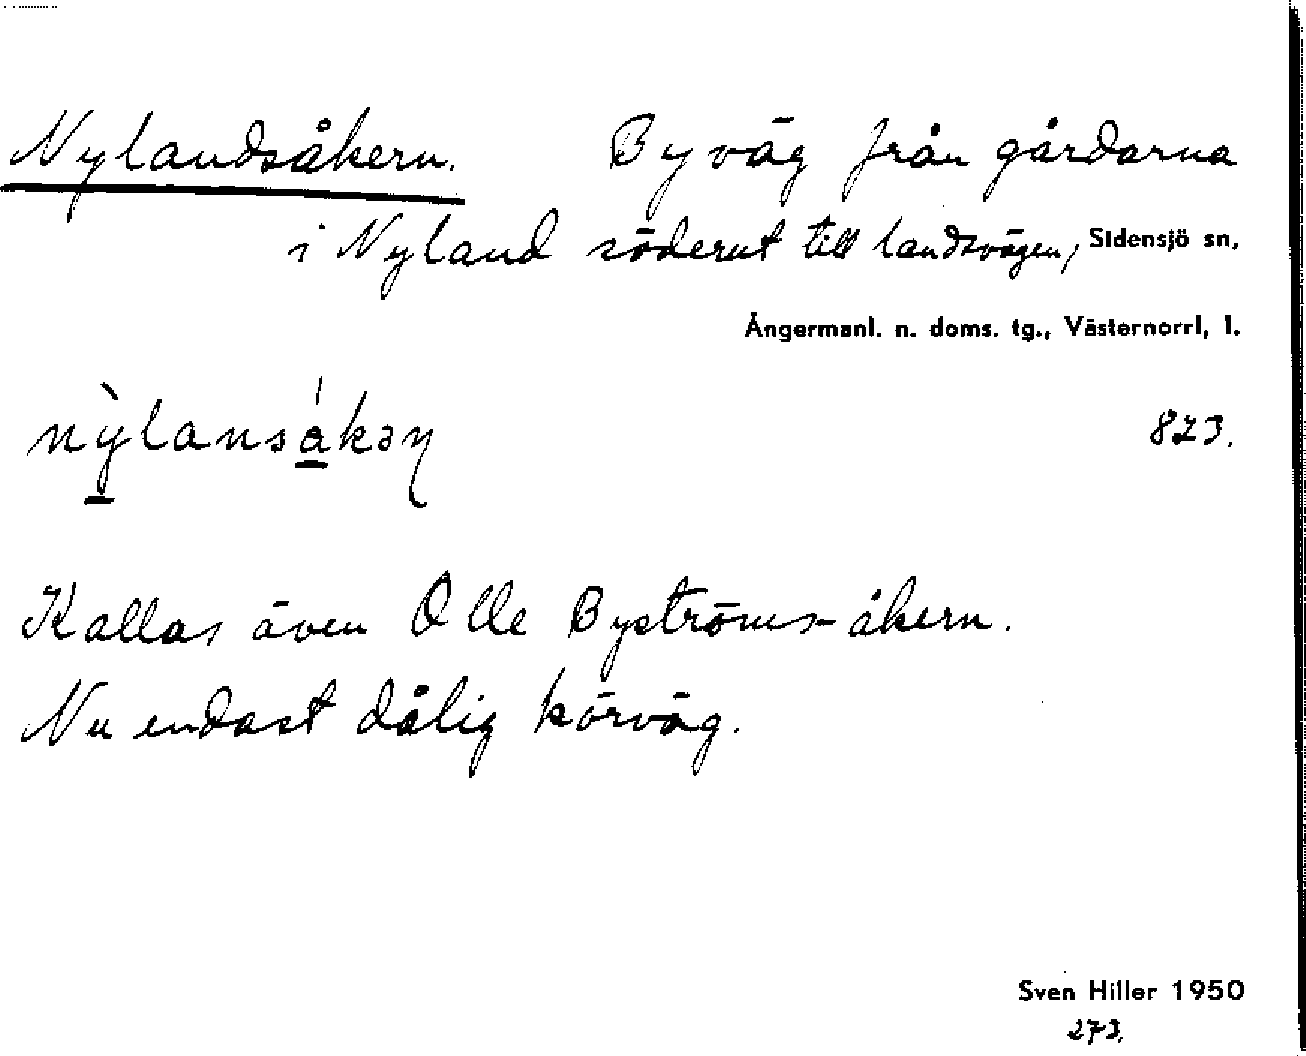 Nylandsåkern. Byväg från gårdarna
i Nyland söderut till landsvägen, Sidensjö sn,
Ångermanl. n. doms. tg., Västernorrl, l.
nỳlansákəɳ 823.
Kallas även Olle Byströms-åkern.
Nu endast dålig körväg.
Sven Hiller 1950
273.